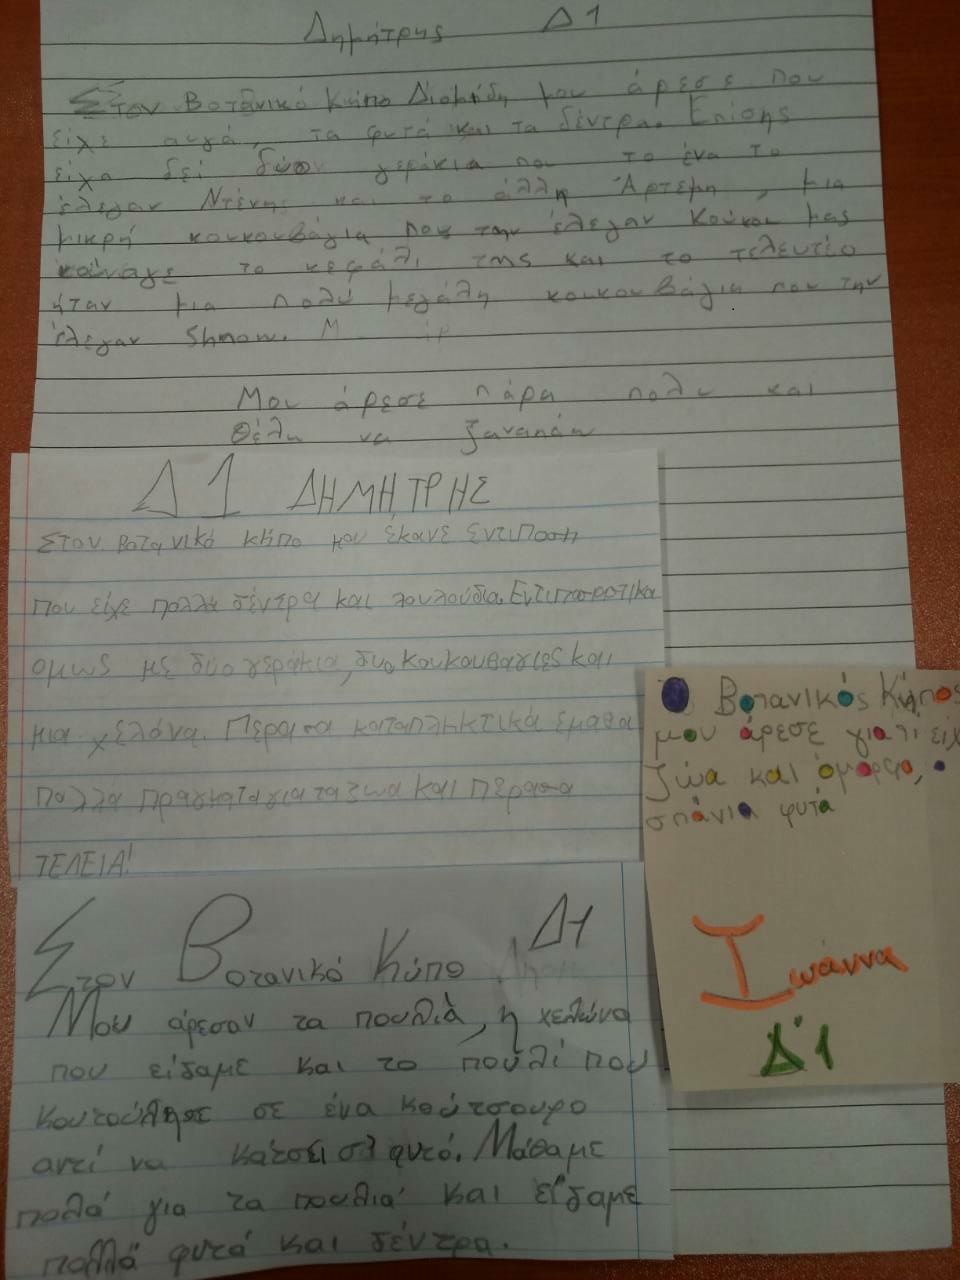 Δημήτρης Δ1
Στον Βοτανικό Κήπο Διομήδη μου άρεσε που
είχε αυγά, τα φυτά και τα δέντρα. Επίσης
είχα δεί δύο γεράκια που το ένα το
έλεγαν Ντένης και το άλλη Άρτεμη, μια
μικρή κουκουβάγια που την έλεγαν Κούκου μας
το κεφάλι της και το τελευτέο
ήταν μια πολύ μεγάλη κουκουβάγια που την
έλεγαν Shnow.
Μου άρεσε πάρα πολυ και
θέλη να ξαναπάω
Δ1 ΔΗΜΗΤΡΗΣ
Στον βοτανικό κήπο μου έκανε εντιποση
που είχε πολλα δέντρα και λουλούδια.
ομως με δυο γεράκια, δυο κουκουβαγιες και
μια χελόνα. Περασα καταπληκτικά εμαθα
πολλα πραγματα για τα ζωα και περασα
ΤΕΛΕΙΑ!
Ο Βοτανικός Κήπος
μου άρεσε γιατι είχ
ζώα και όμορφα,
σπάνια φυτά
Ιωάννα
Δ'1
Δ1
Στον Βοτανικό Κύπο
Μου άρεσαν τα πουλιά, η χελώνα
που είδαμε και το πουλί που
κουτούλησε σε ένα κούτσουρο
αντί να κάτσει σε αυτό. Μάθαμε
πολά για τα πουλια και είδαμε
πολλά φυτά και δέντρα.